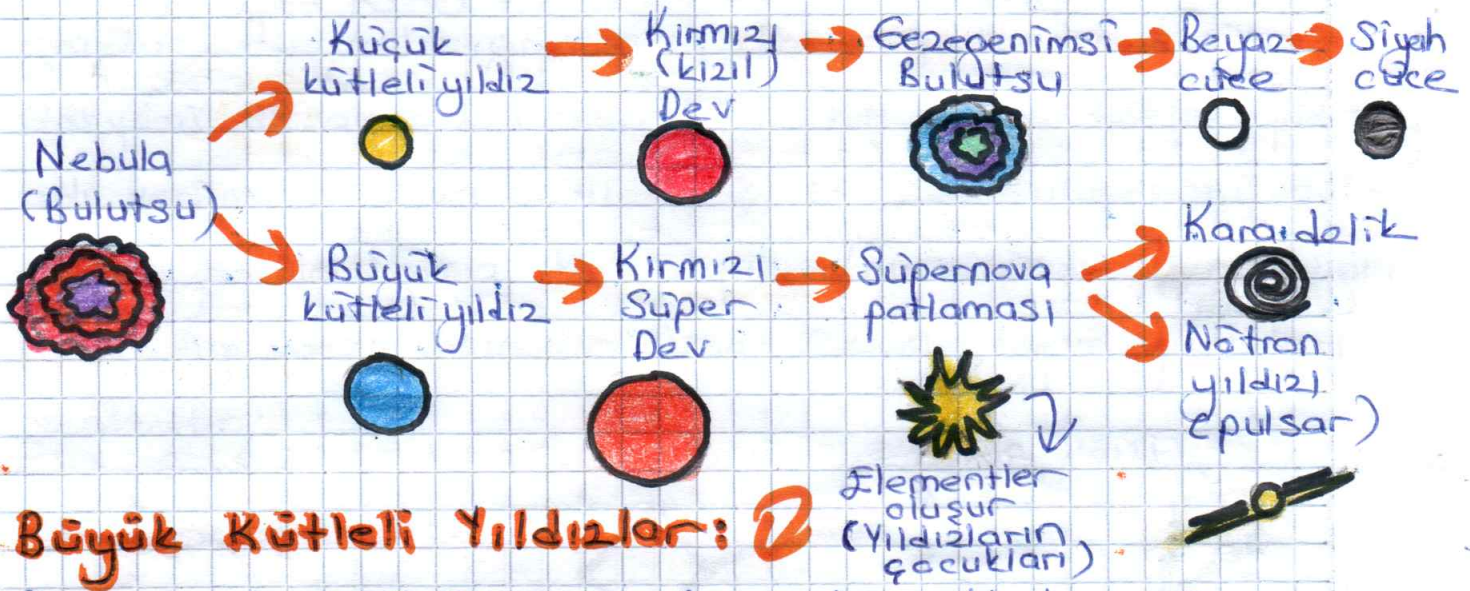 Küçük
kütleli yıldız
Kırmızı
(kızıl)
Dev
Gezegenimsi
Bulutsu
Beyaz
cüce
Siyah
cüce
Nebula
(Bulutsu)
Büyük
kütleli yıldız
Kırmızı
Süper
Dev
Süpernova
patlaması
Karadelik
Nötron
yıldızı
(pulsar)
Elementler
oluşur
(Yıldızların
çocukları)
Büyük Kütleli Yıldızlar: